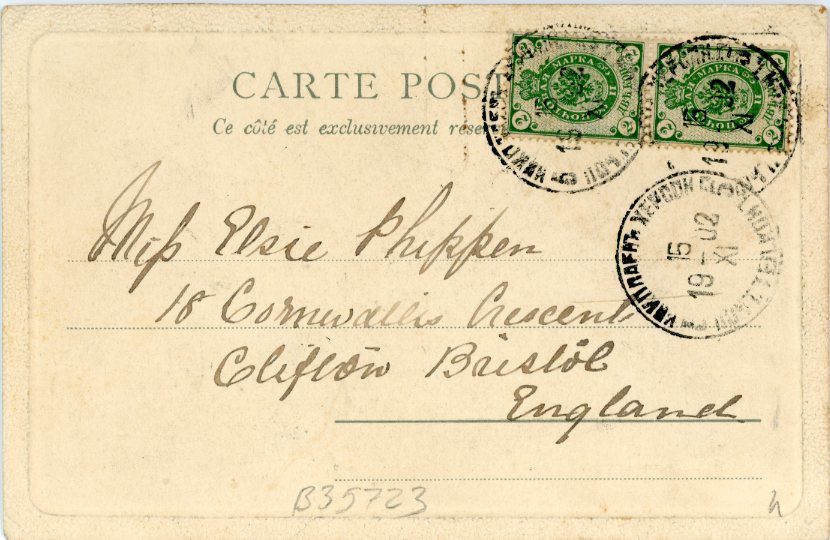 CARTE POST
Ce côté est exclusivement rése
МАРКА
МАРКА
2
2
2
2
15
19 02
XI
Miss Elsie Phippen
18 Cornwallis Crescent
Clifton Bristol
England
B35723